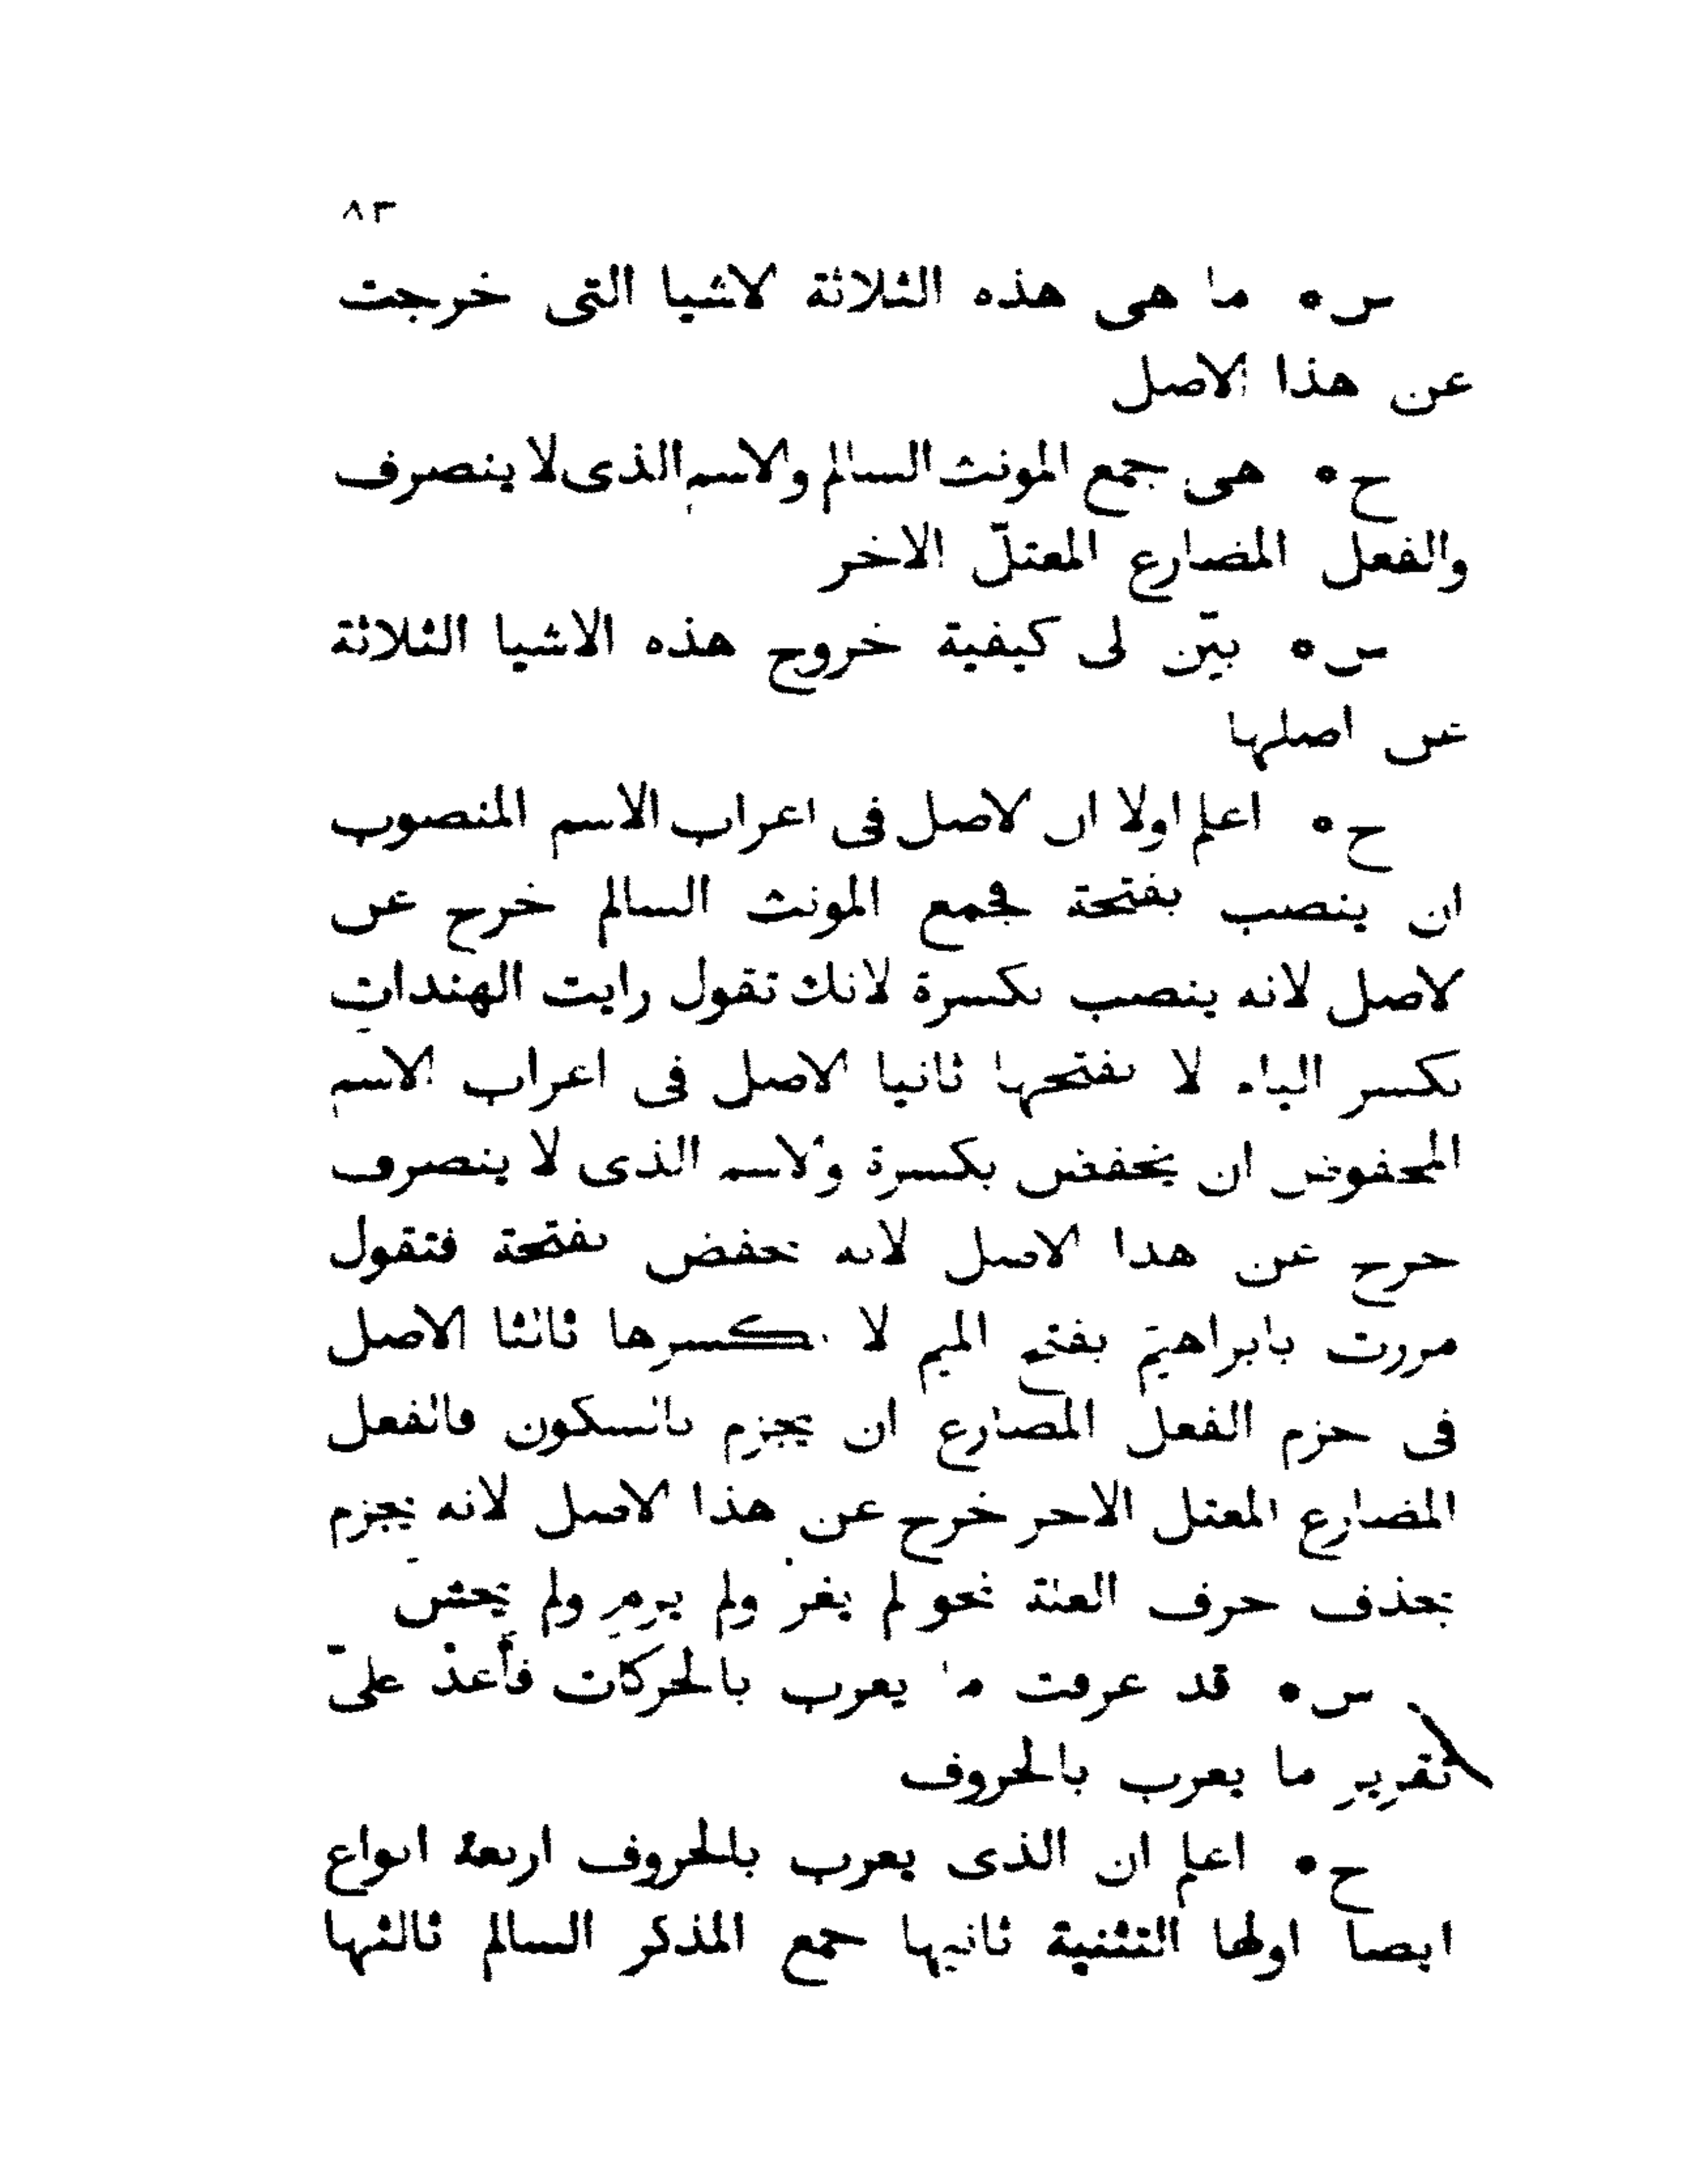 ٨٣
س • ما هى هذه الثلاثة الاشيا التى خرجت
عن هذا الاصل
ج • هى جمع المونث السالم والاسم الذى لا ينصرف
والفعل المضارع المعتلّ الاخر
س • بيّن لى كيفية خروج هذه الاشيا الثلاثة
عن اصلها
ج • اعلم اولا ان الاصل فى اعراب الاسم المنصوب
ان ينصب بفتحة فجمع المونث السالم خرج عن
الاصل لانه ينصب بكسرة لانك تقول رايت الهنداتِ
بكسر التاء لا بفتحها ثانيا الاصل فى اعراب الاسم
المخفوض ان يخفض بكسرة والاسم الذى لا ينصرف
خرج عن هذا الاصل لانه يخفض بفتحة فتقول
مررت بابراهيمَ بفتح الميم لا بكسرها ثالثا الاصل
فى جزم الفعل المضارع ان يجزم بالسكون فالفعل
المضارع المعتل الاخر خرج عن هذا الاصل لانه يجزم
بحذف حرف العلة نحو لم يغز ولم يرمِ ولم يخشَ
س • قد عرفت ما يعرب بالحركات فأعد علىّ
تقرير ما يعرب بالحروف
ج • اعلم ان الذى يعرب بالحروف اربعة انواع
ايضا اولها التثنية ثانيها جمع المذكر السالم ثالثها